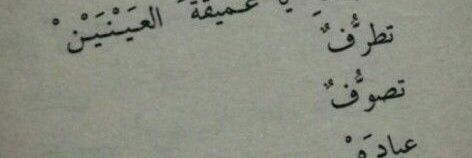 عميقة العَيْنَيْنْ
تطرُّفٌ
تصوُّفٌ
عبادَةْ